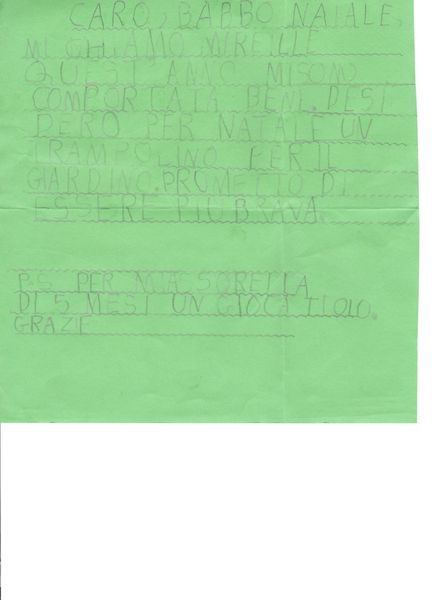 CARO, BABBO NATALE,
MI CHIAMO MIREILLE
QUEST ANNO MI SONO
COMPORTATA BENE. DESI
DERO PER NATALE UN
TRAMPOLINO PER IL
GIARDINO. PROMETTO DI
ESSERE PIÙ BRAVA.
P.S PER MIA SORELLA
DI 5 MESI UN GIOCATTOLO.
GRAZIE